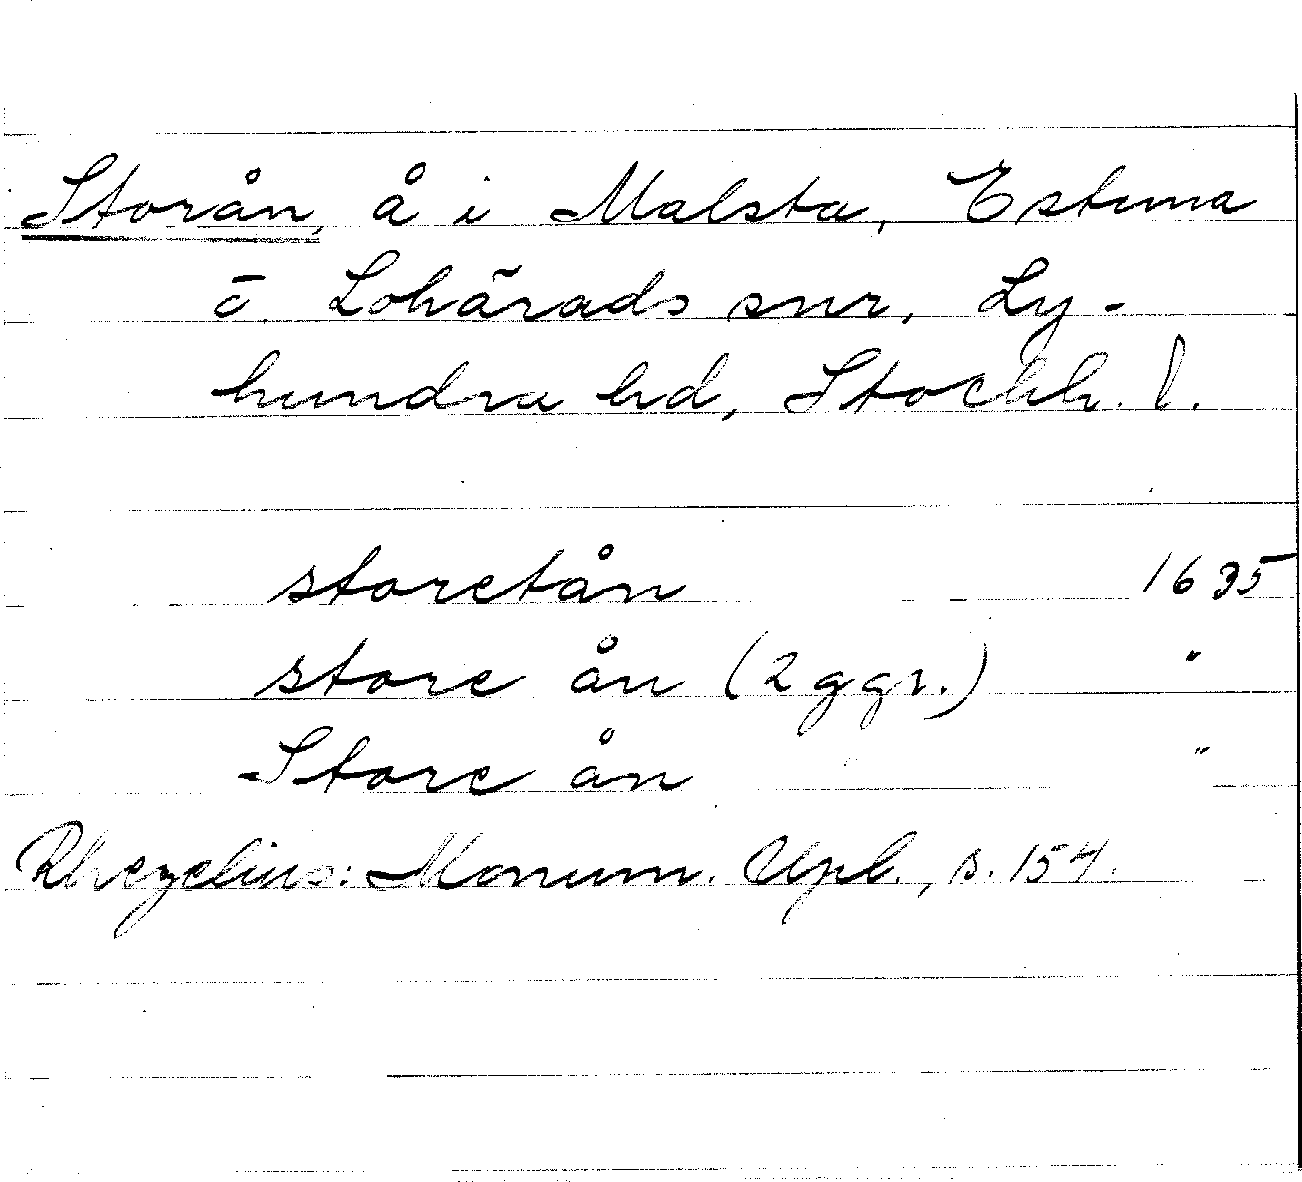 Storån, å i Malsta, Estuna
ö. Lohärads snr, Ly-
hundra hd, Stockh. l.
storetån 1635
store ån (2 ggr.) "
Store ån "
Rhezelius: Monum. Upl., s. 154.